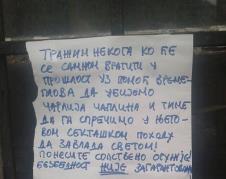 ТРАЖИМ НЕКОГА КО ЋЕ
СЕ САМНОМ ВРАТИТИ У
ПРОШЛОСТ УЗ ПОМОЋ ВРЕМЕ-
ПЛОВА ДА УБИЈЕМО
ЧАРЛИЈА ЧАПЛИНА И ТИМЕ
ДА ГА СПРЕЧИМО У ЊЕГО-
ВОМ СЕКТАШКОМ ПОХОДУ
ДА ЗАВЛАДА СВЕТОМ!
ПОНЕСИТЕ СОПСТВЕНО ОРУЖЈЕ!
БЕЗБЕДНОСТ НИЈЕ ЗАГАРАНТОВАНА